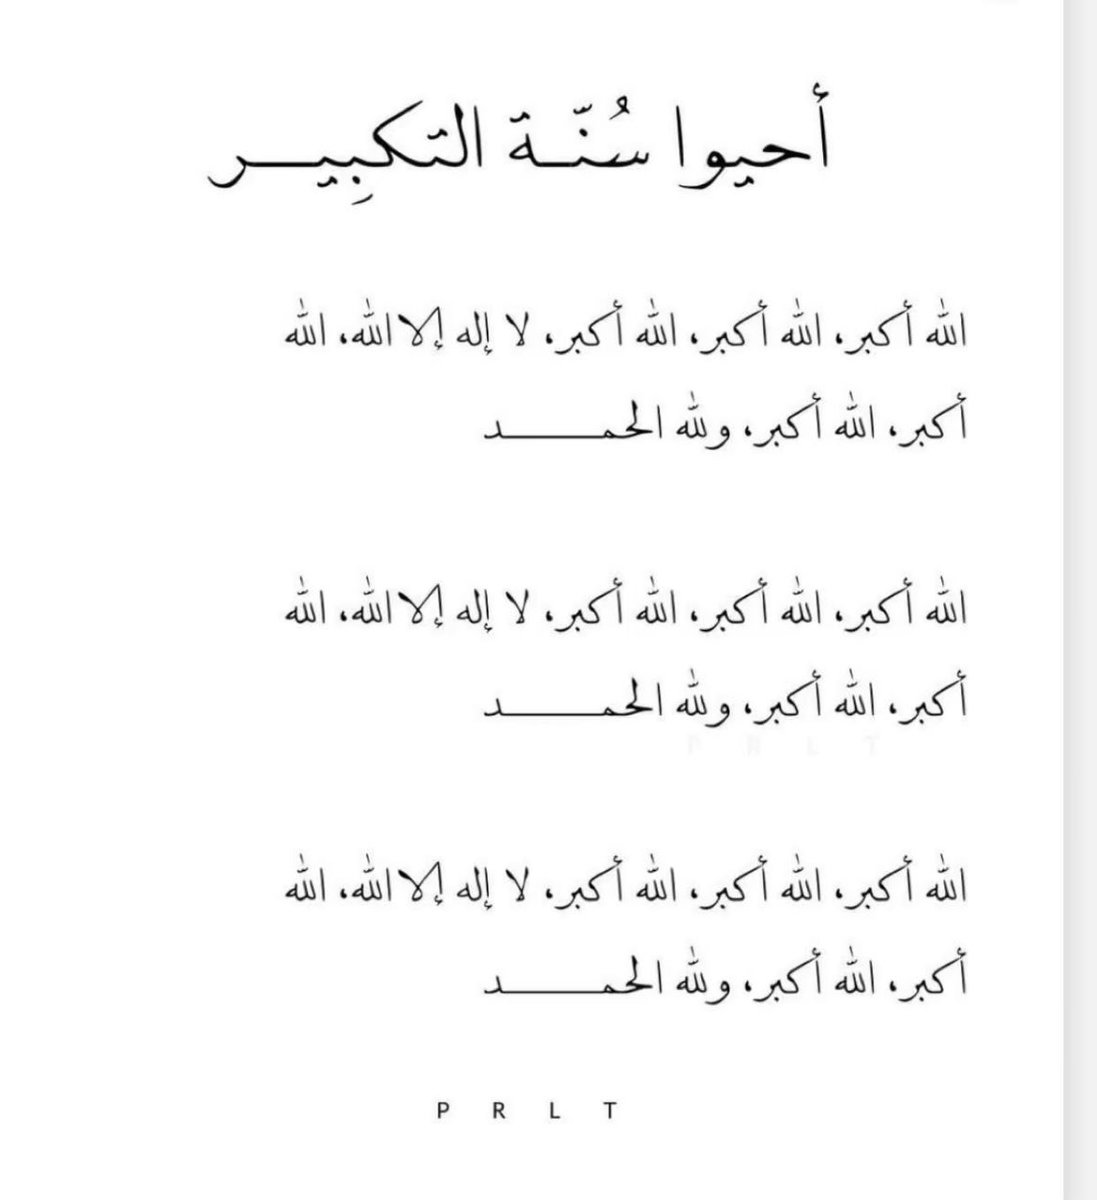 أحيوا سُنّـة التكبِيـر
الله أكبر، الله أكبر، الله أكبر، لا إله إلا الله، الله
أكبر، الله أكبر، ولله الحمـــــد
الله أكبر، الله أكبر، الله أكبر، لا إله إلا الله، الله
أكبر، الله أكبر، ولله الحمـــــد
P R L T
الله أكبر، الله أكبر، الله أكبر، لا إله إلا الله، الله
أكبر، الله أكبر، ولله الحمـــــد
P R L T